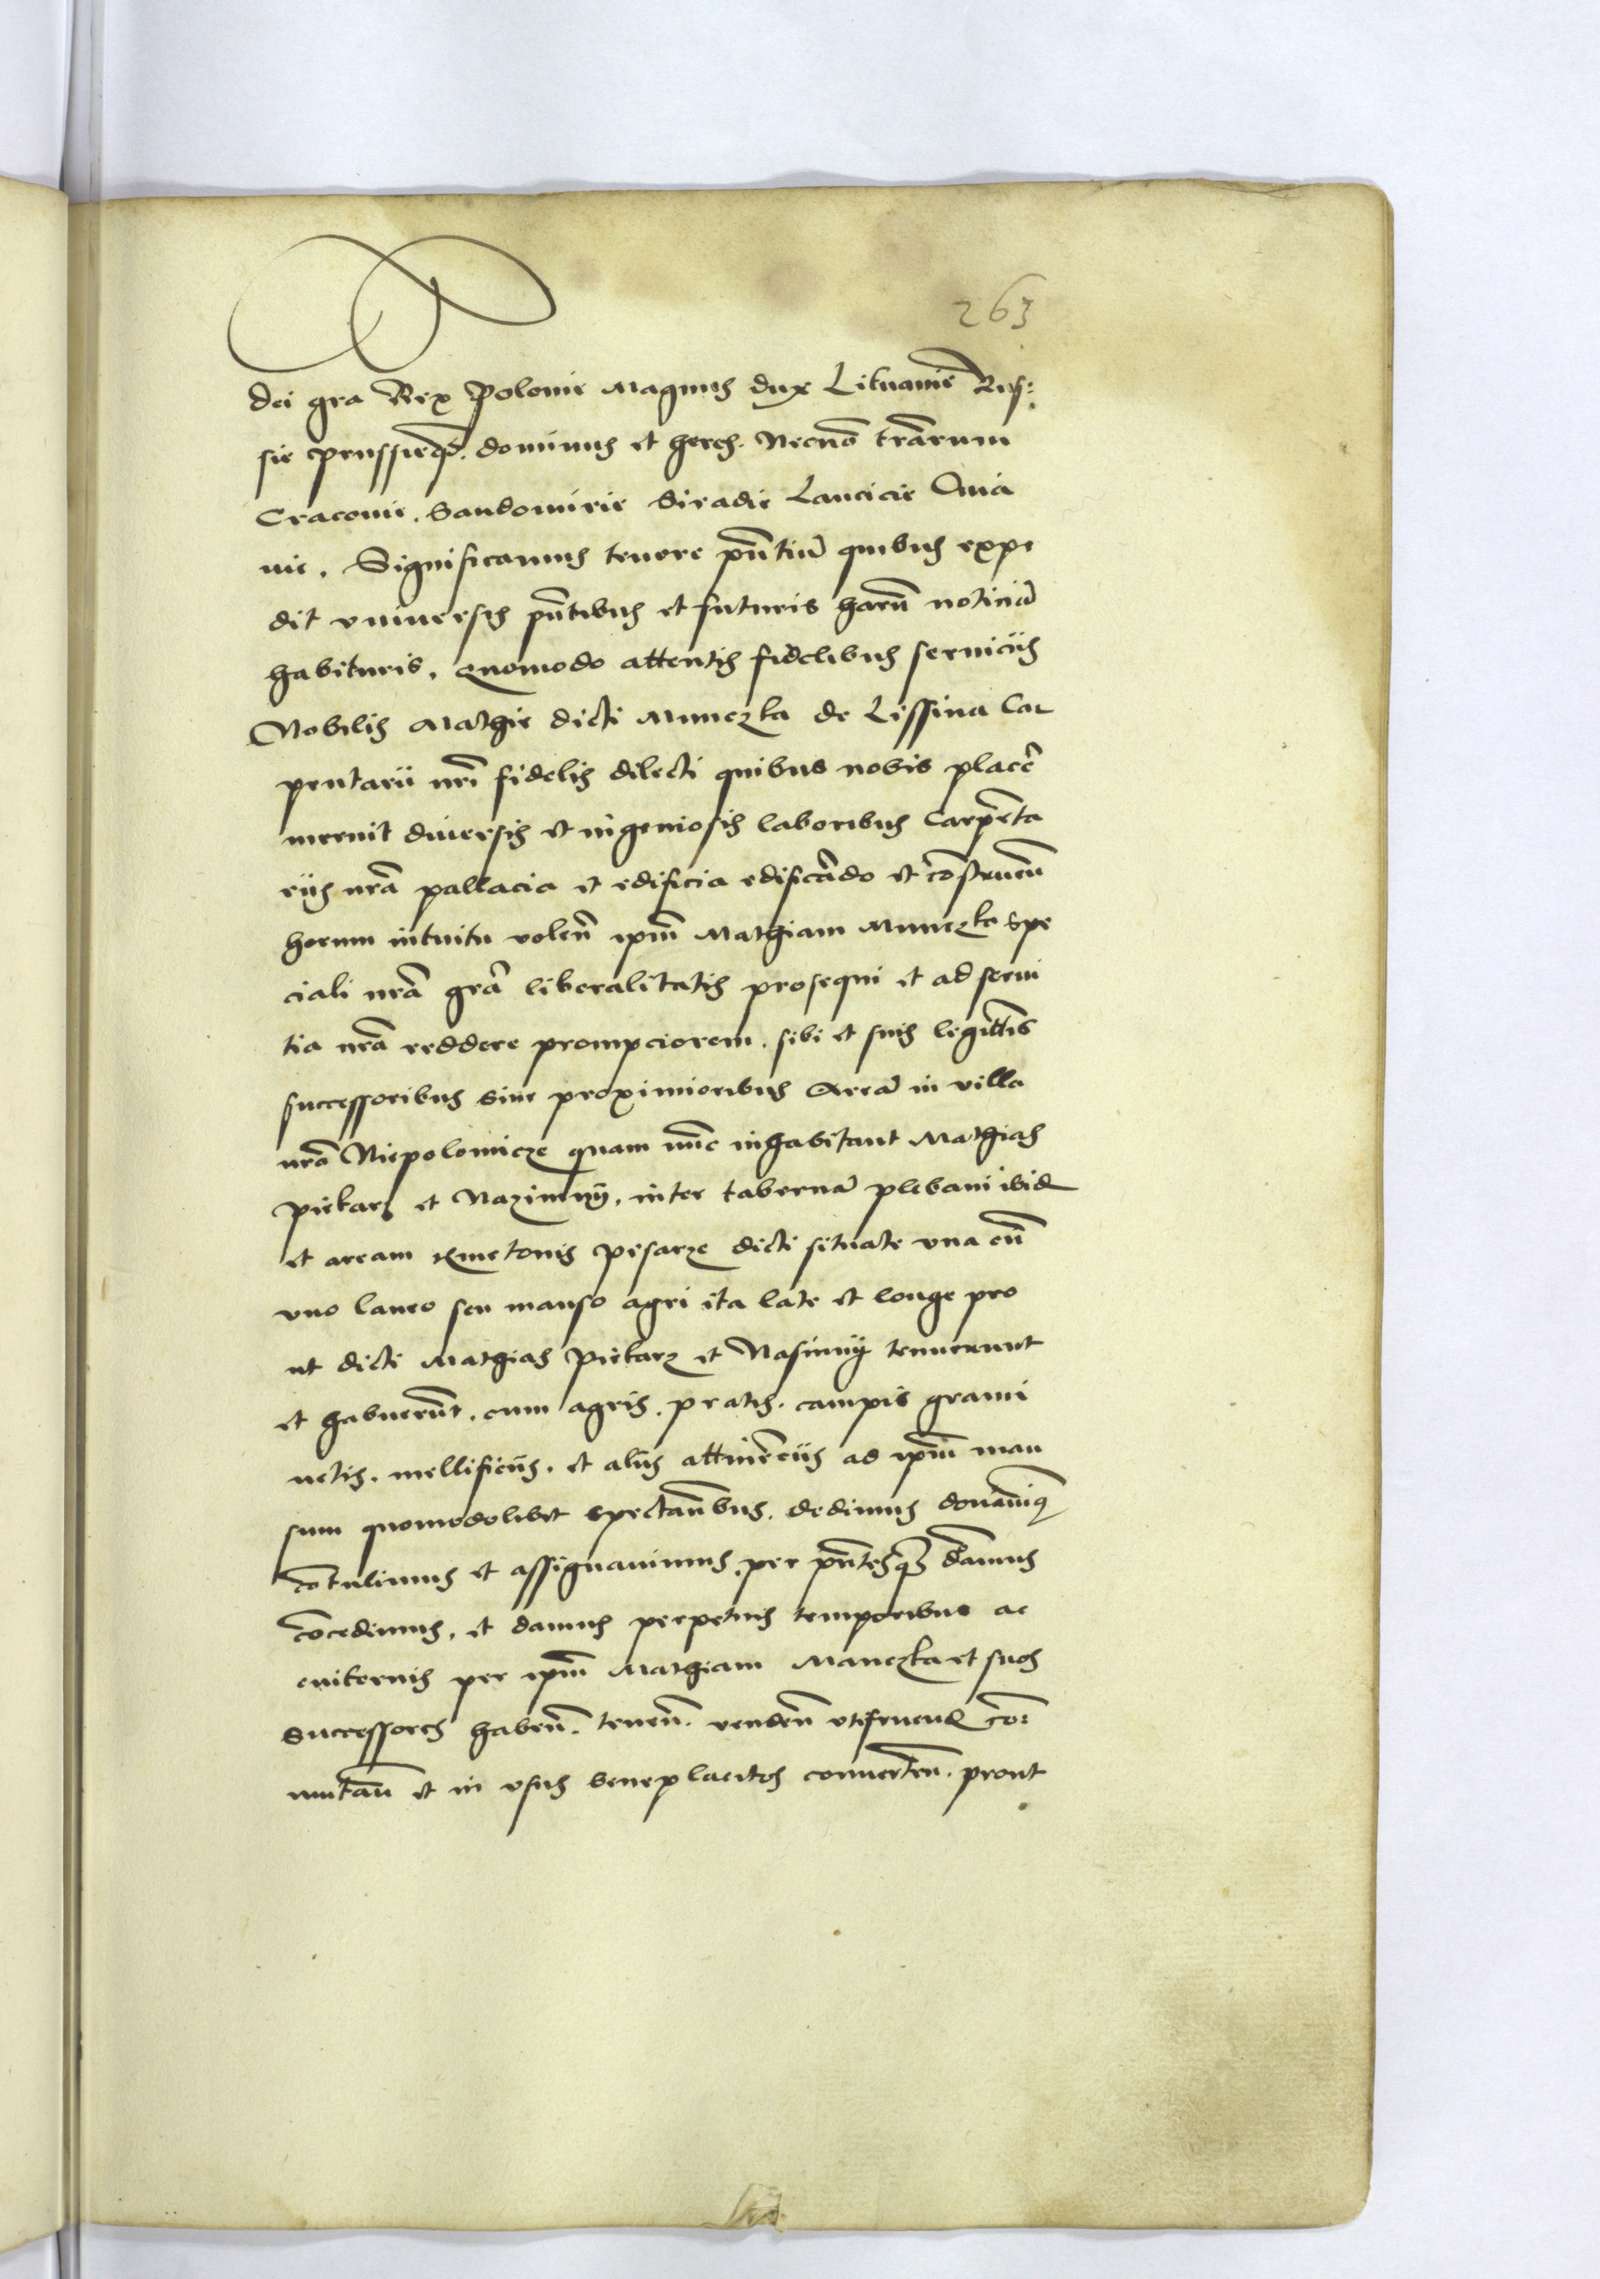 263
dei gra Rex Polonie Magnus dux Lituanie Rus:
sie prussieq̃. dominus et heres. Necnõ trãrum
Craconie. Sandomirie Siradie Lancicie Cuia
uie. Significamus tenore pñtiũ quibus expe
dit vniuersis pñtibus et futuris harũ noticiã
habituris. quomodo attentis fidelibus seruiciis
Nobilis Mathie dicti Munczka de Lissina Car
pentarii nr̃i fidelis dilecti quibus nobis placẽ
meruit diuersis et ingeniosis laboribus Carpẽta
riis nrã pallacia et edificia edificãdo et cõstrueñ
horum intuitu voleñ ipm̃ Mathiam Munczka spe
ciali nrã grã liberalitatis prosequi et ad serui
tia nrã reddere prompciorem. sibi et suis legitt̃is
successoribus siue proximioribus Areã in villa
nrã Niepolomicze quam nũc inhabitant Mathias
piekarz et Nazimny. inter tabernã plebani ibid
et aream kmetonis pisarze dicti situate vna cũ
vno laneo seu manso agri ita late et longe pro
ut dicti Mathias Piekarz et Nasimny tenuerunt
et habuerũt. cum agris. pratis. campis grami
netis. mellificiis. et aliis attinẽciis ad ipm̃ man
sum quomodolibet spectañbus. dedimus donauimq̃
cõtulimus et assignauimus. per pñtesq̃ damus
cõcedimus. et damus perpetuis temporibus ac
euiternis per ipm̃ Mathiam Manczka et suos
successores habeñ. teneñ. vendeñ vtifruend cõ:
mutañ et in vsus beneplacitos conuerteñ. prout